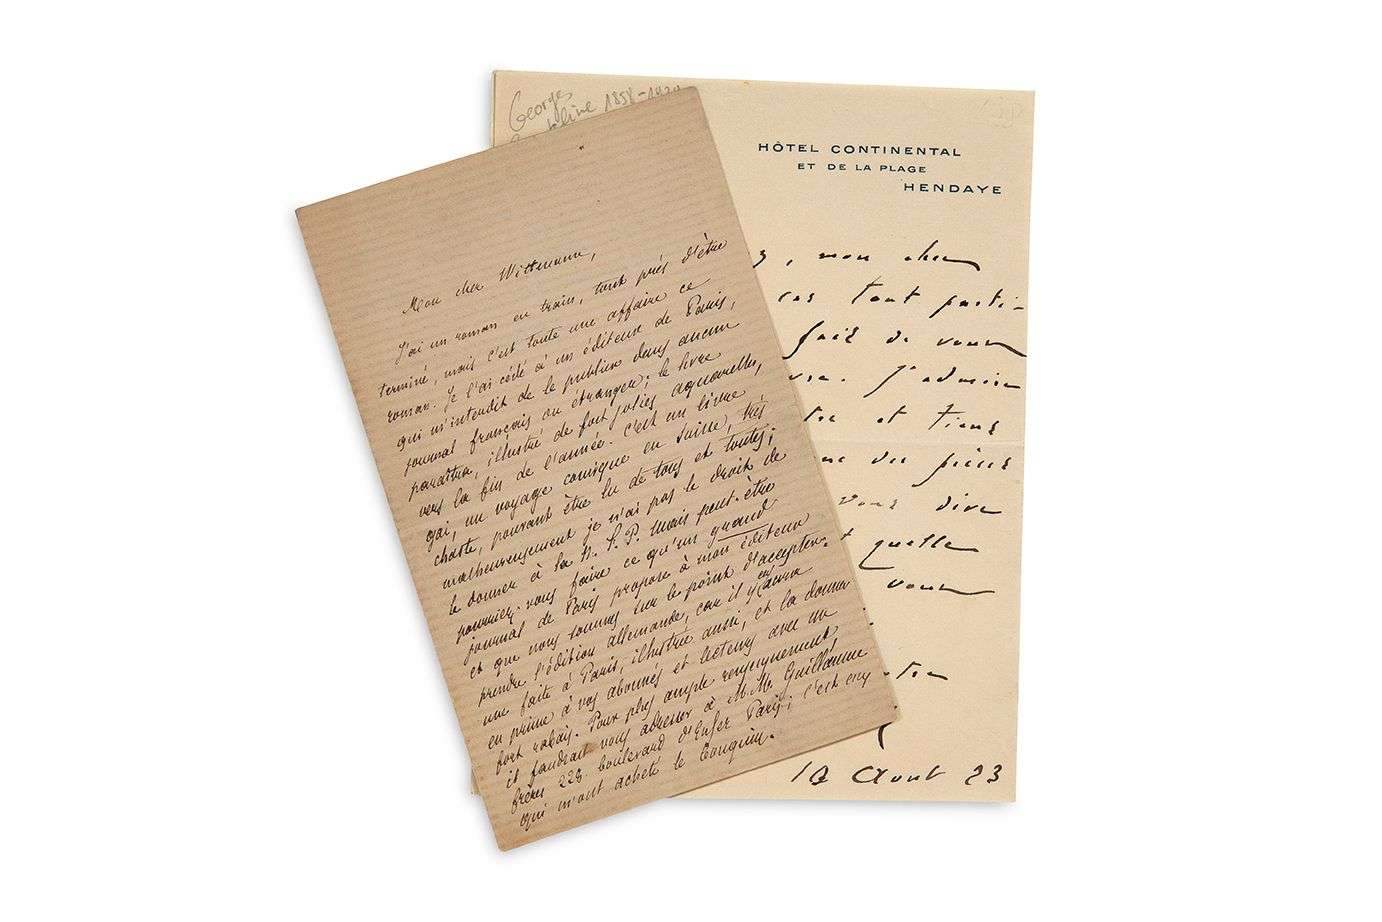 George
1858-1929
HÔTEL CONTINENTAL
ET DE LA PLAGE
HENDAYE
Mon cher Wittmann,
J'ai un roman en train, tout près d'être
terminé, mais c'est toute une affaire ce
roman. Je l'ai cédé à un éditeur de Paris,
qui m'interdit de le publier dans aucun
journal français ou étranger; le livre
paraîtra, illustré de fort jolies aquarelles,
vers la fin de l'année. C'est un livre
gai, un voyage comique en Suisse, très
chaste, pouvant être lu de tous et toutes;
malheureusement je n'ai pas le droit de
le donner à la P. Mais peut-être
pourriez-vous faire ce qu'un grand
journal de Paris propose à mon éditeur
et que nous sommes sur le point d'accepter:
prendre l'édition allemande, car il y en aura
une faite à Paris, illustrée aussi, et la donner
en prime à vos abonnés et lecteurs avec un
fort rabais. Pour plus ample renseignement,
il faudrait vous adresser à M.M. Guillaume
frères boulevard d'Enfer Paris; c'est eux
qui m'ont acheté le
, mon cher
cas tout parti-
fait de vous
J'admire
et tiens
des pièces
vous dire
quelle
vous
Août 23